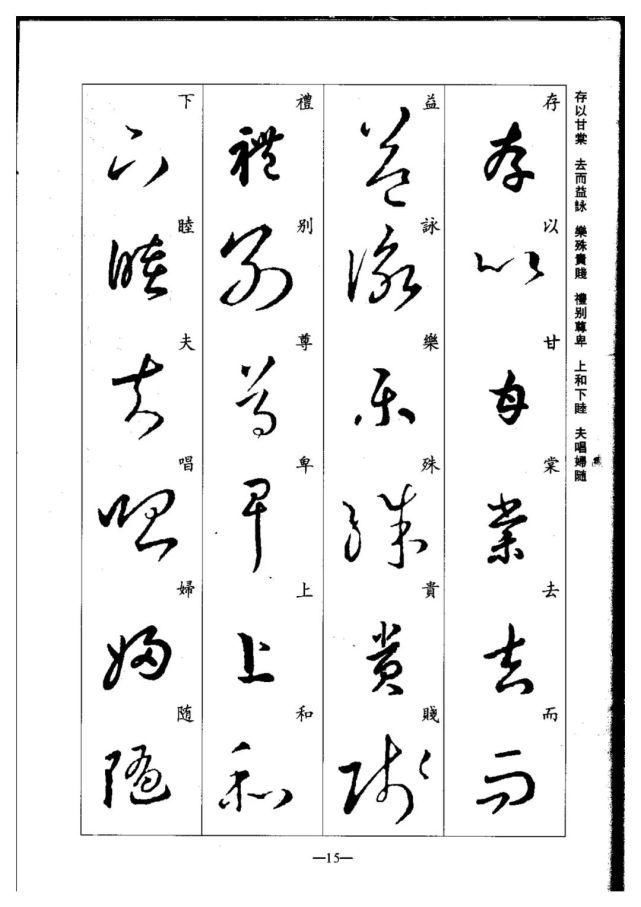 存以甘棠 去而益詠 樂殊貴賤 禮别尊卑 上和下睦 夫唱婦随
存以甘棠去而
益詠樂殊貴賤
禮别尊卑上和
下睦夫唱婦随
存以甘棠去而
益詠樂殊貴賤
禮别尊卑上和
下睦夫唱婦随
—15—